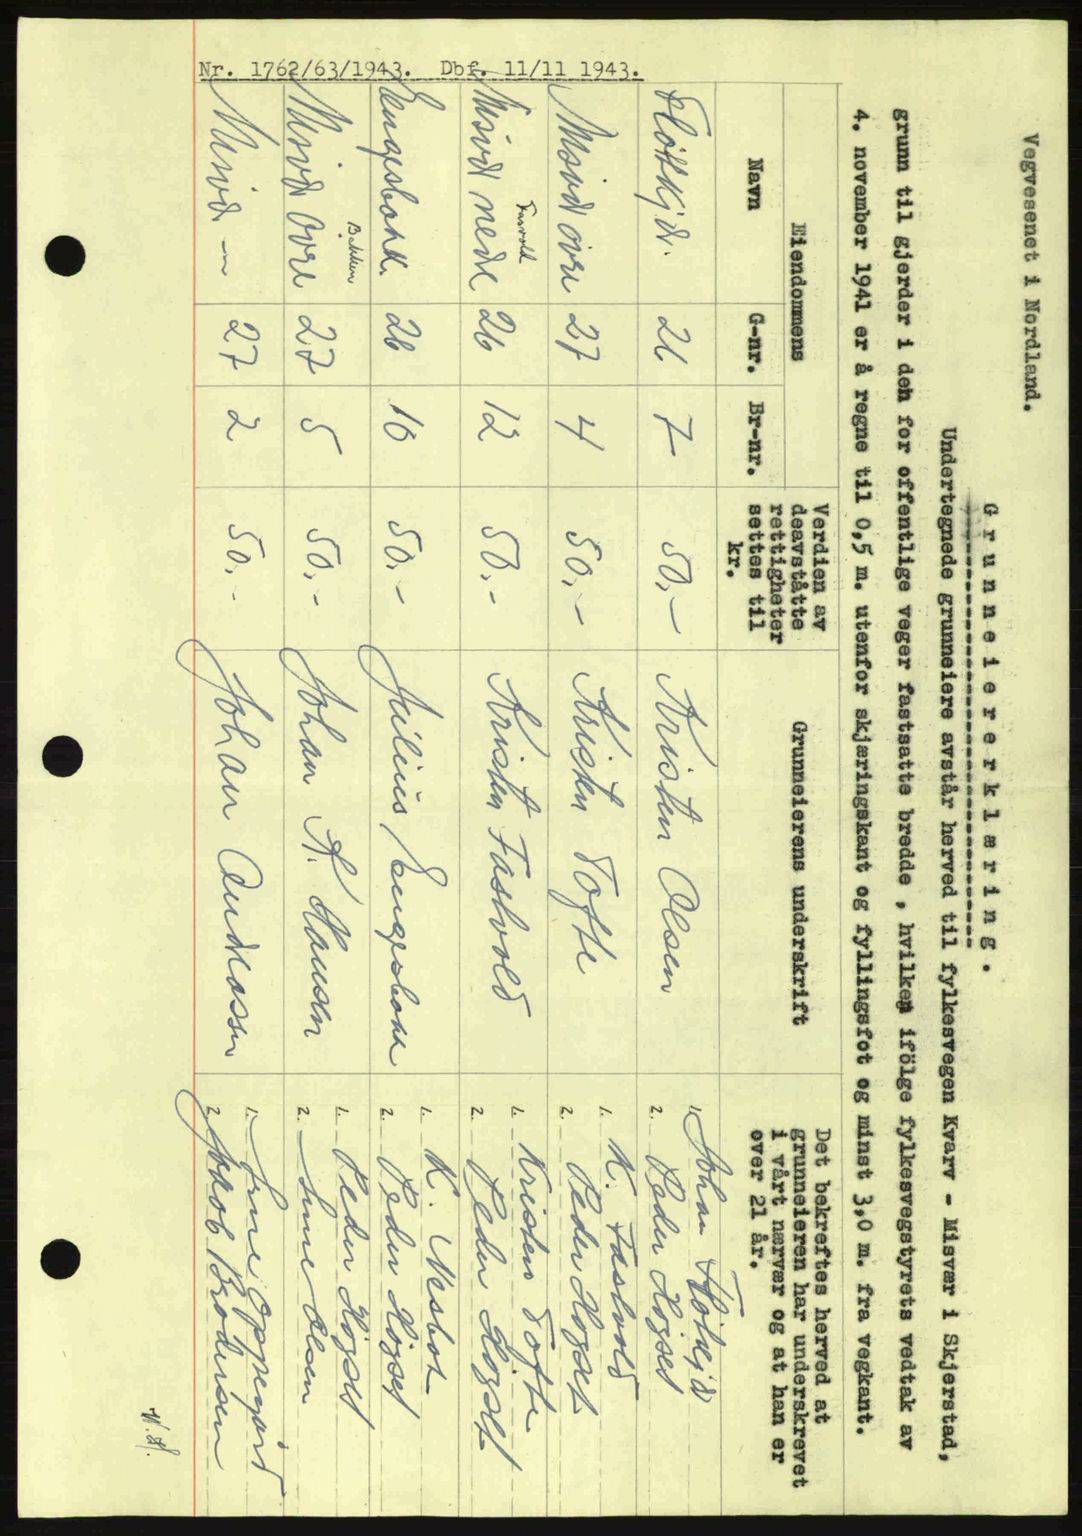 Nr. 1762/63/1943. Dbf. 11/11 1943.
Vegvesenet i Nordland.
Grunneiererklæring.
Undertegnede grunneiere avstår herved til fylkesvegen Kvarv - Misvær i Skjerstad,
grunn til gjerder i den for offentlige veger fastsatte bredde , hvilken ifölge fylkesvegstyrets vedtak av
4. november 1941 er å regne til 0,5 m. utenfor skjæringskant og fyllingsfot og minst 3,0 m. fra vegkant.
Eiendommens
Navn G-nr. Br-nr.
Verdien av
deavståtte
rettigheter
settes til
kr.
Grunneierens underskrift
Det bekreftes herved at
grunneieren har underskrevet
i vårt nærvær og at han er
over 21 år.
26 7 50,- Kristen Olsen 1. Johan
2. Peder Högset
Misvær övre 27 4 50,- Kristen Tofte 1. K. Fastvold
2. Peder Högset
Fasvold
Misvær nedre 26 12 50,- Kristen Fastvold 1. Kristen Tofte
2. Peder Högset
Engesbakk 26 16 50,- Julius Engesbakk 1. K. Nesbak
2. Peder Högset
Bakken
Misvær övre 27 5 50,- Johan A. Hansen 1. Peder Högset
2. Arne Olsen
Misvær — 27 2 50,- Johan Andreassen 1. Arne Oppegård
2. Jakob Brodersen
W.H.